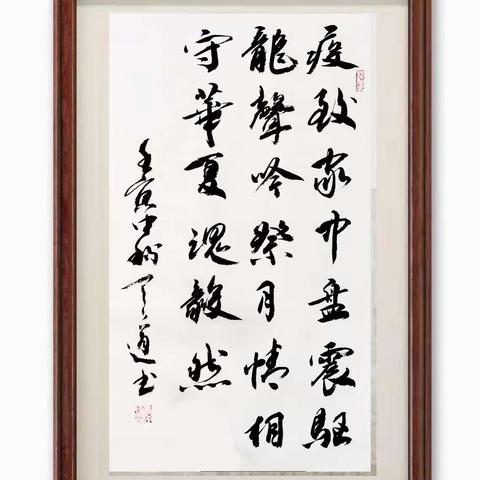 疫致家中盘震驱
龍聲吟祭月情相
守華夏魂馥然
壬寅中秋道书